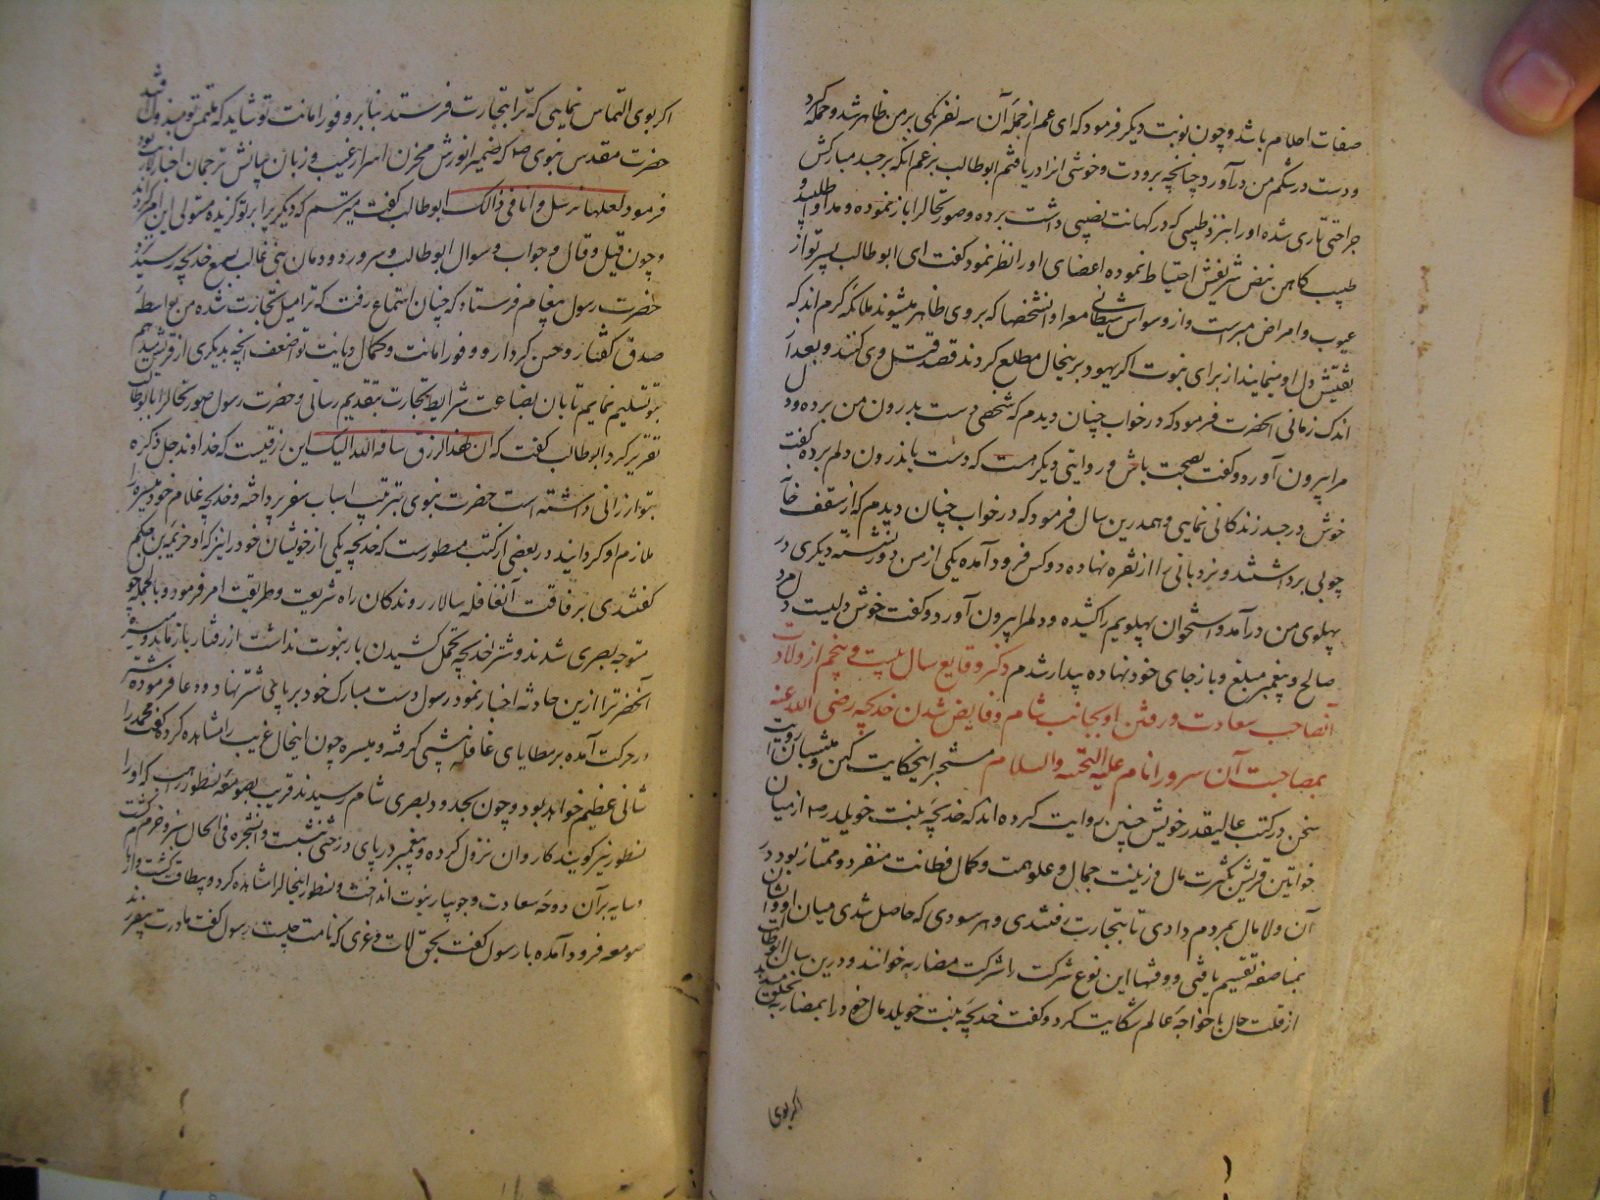 صفات احلام باشد و چون نوبت دیگر فرمود که ای عم از جمله آن سه نفر یکی بر من ظاهر شد و حمله کرد
و دست در شکم من درآورد چنانچه برودت و خوشی آنرا دریافتم ابوطالب بزعم آنکه بر جسد مبارکش
جراحتی طاری شده او را بنزد طبیبی که در کهانت نصیبی داشت برده و صورتحال را باز نموده و مداوا طلبید و
طبیب کاهن نبض شریفش احتیاط نموده اعضای او را نظر نمود گفت ای ابوطالب پسر تو از
عیوب و امراض مبراست و از وسواس شیطانی معرا و آن شخصها که بر وی ظاهر میشوند ملائکه گرم‌اند که
تفتیش دل او مینمایند از برای نبوت اگر یهود برینحال مطلع گردند قصد قتل وی کنند و بعد از
اندک زمانی آنحضرت فرمود که در خواب چنان دیدم که شخصی دست بدرون من برده و دل
مرا بیرون آورد و گفت بصحت باش و در روایتی دیگر هست که دست باندرون دلم برده گفت
خوش در جسد زندگانی نمایی و همدرین سال فرمود که در خواب چنان دیدم که از سقف خانه
چوبی برداشتند و نردبانی را از نقره نهاده دو کس فرود آمده یکی از من دور نشسته دیگری در
پهلوی من درآمد و استخوان پهلویم را کشیده و دلم را بیرون آورد و گفت خوش دلیست دل مرد
صالح و پیغمبر مبلغ و باز جای خود نهاده بیدار شدم ذکر وقایع سال بیست و پنجم از ولادت
آنصاحب سعادت و رفتن او بجانب شام و فایض شدن خدیجه رضی الله عنه
بمصاحبت آن سرور انام علیه التحیه والسلام مستخبر اینحکایت کهن و
سخن در کتب عالیقدر خویش چنین روایت کرده اند که خدیجه بنت خویلد رض از میان
خواتین قریش بکثرت مال و زینت جمال و علو همت و کمال فطانت منفرد و ممتاز بود در
آن ولا مال بمردم دادی تا بتجارت رفتندی و هر سودی که حاصل شدی میان او و ایشان
بمناصفه تقسیم یافتی و فقها این نوع شرکت را شرکت مضاربه خوانند و درین سال ابوطالب
از قلت حال با خواجه عالم شکایت کرد و گفت خدیجه بنت خویلد مال خود را بمضاربه بخلق میدهد
اگر بوی
اگر بوی التماس نمایی که ترا بتجارت فرستد بنابر وفور امانت تو شاید که ملتمس تو مبذول افتد
حضرت مقدس نبوی ص که ضمیر انورش مخزن اسرار غیب و زبان بیانش ترجمان اخبار لاریب بود
فرمود لعلها ترسل و انا فی ذالک ابوطالب گفت میترسم که دیگر یرا بر تو گزیده متولی این امر گرداند
و چون قیل و قال و جواب و سوال ابوطالب و سرور دودمان بنی غالب بسمع خدیجه رسید نزد
حضرت رسول پیغام فرستاد که چنان استماع رفت که ترا میل تجارت شده من بواسطه
صدق گفتار و حسن کردار و وفور امانت و کمال دیانت تو اضعف آنچه بدیگری از قریش میدهم
بتو تسلیم نمایم تا بان بضاعت شرایط تجارت بتقدیم رسانی و حضرت رسول صورتحال را با ابوطالب
تقریر کرد ابوطالب گفت که ان هذا الرزق ساقه الله الیک این رزقیست که خداوند جل ذکره
بتو ارزانی داشته است حضرت نبوی بترتیب اسباب سفر پرداخته و خدیجه غلام خود میسره را
ملازم او گردانید و در بعضی از کتب مسطورست که خدیجه یکی از خویشان خود را نیز که او خزیمه بن حکیم
گفتندی برفاقت آنقافله سالار روندگان راه شریعت و طریقت امر فرمود و بالجمله چو
متوجه بصری شدند دو شتر خدیجه تحمل کشیدن بار نبوت نداشت از رفتار باز ماند و میسره
آنحضرت را ازین حادثه اخبار نمود رسول دست مبارک خود بر پای شتر نهاد و دعا فرمود شتر
در حرکت آمده بر مطایای قافله پیشی گرفته و میسره چون اینحال غریب را مشاهده کرد گفت محمد را
شانی عظیم خواهد بود و چون بحدود بصری شام رسیدند قریب بصومعه نسطور راهب که او را
نسطور نیز گویند کاروان نزول کرده و پیغمبر در پای درختی نشست و آنشجره فی الحال سبز و خرم گشت
و سایه بر آن دوحه سعادت و جویبار نبوت انداخت و نسطور اینحال را مشاهده کرد و بیطاقت گشت و از
صومعه فرود آمده با رسول گفت بحق لات و عزی که نامت چیست رسول گفت مادرت بی فرزند